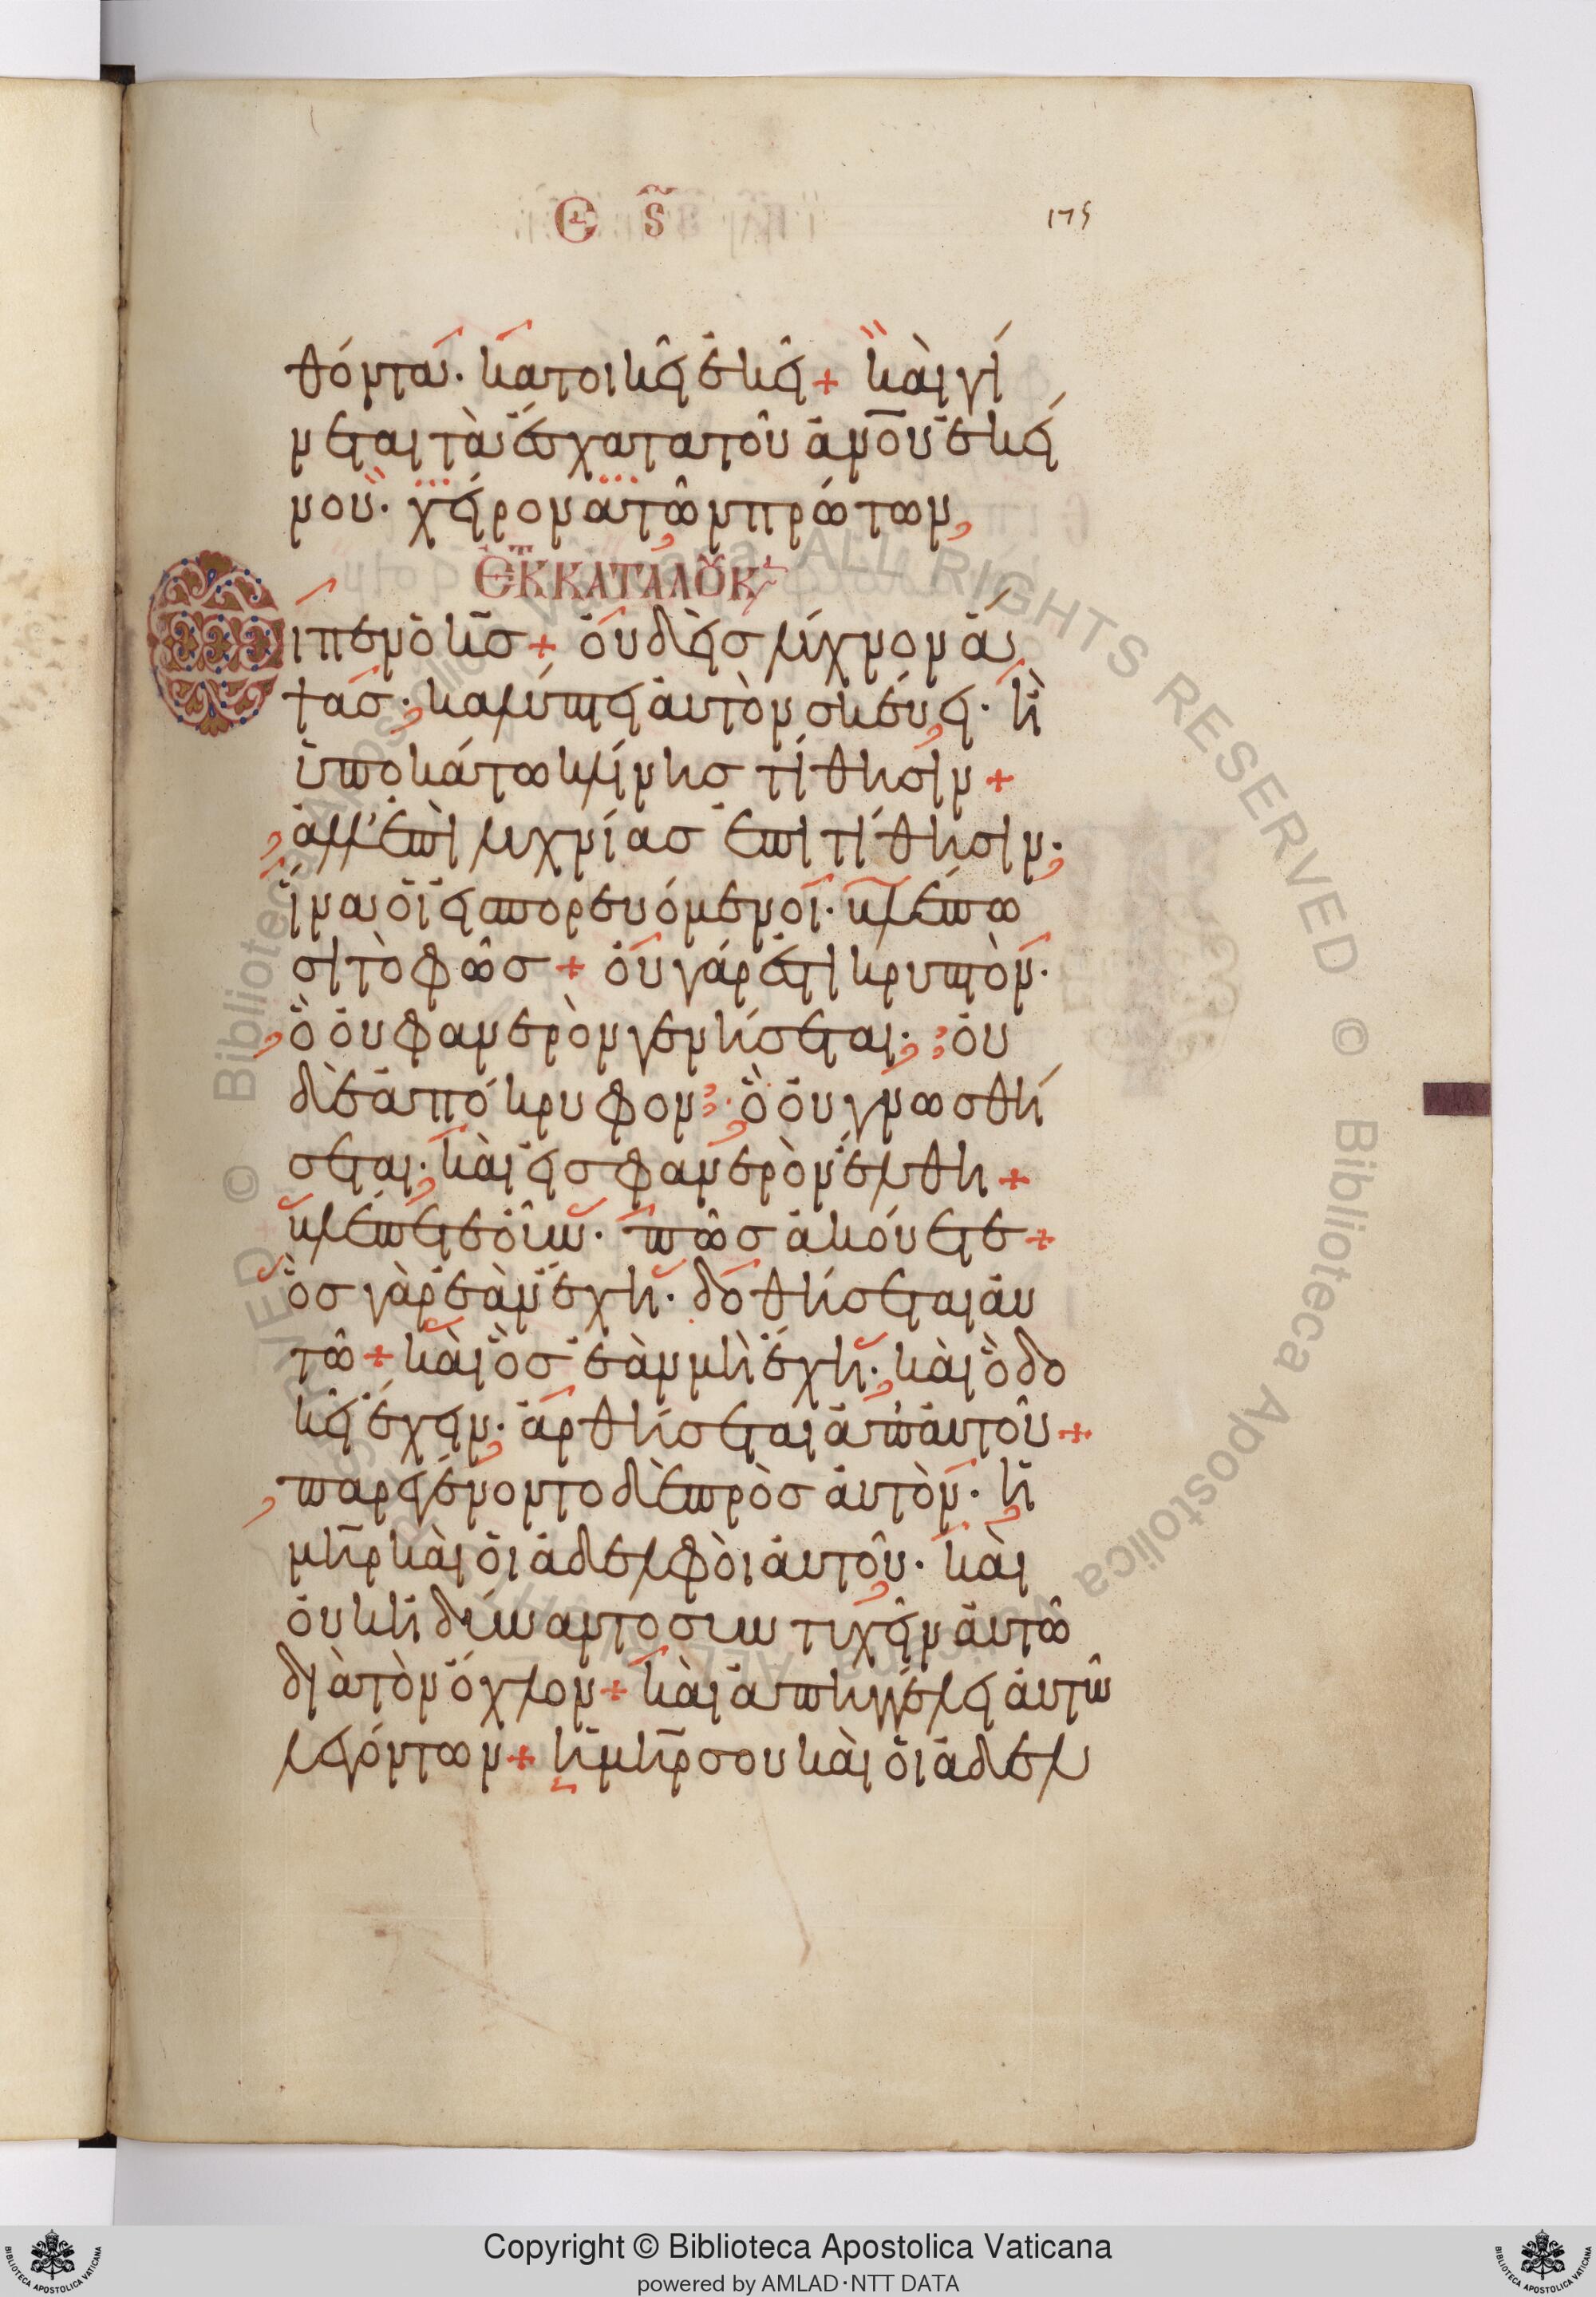 Ε ϛ̃ 175
θόντα· κατοικεῖ ἐκεῖ + καὶ γί
νεται τὰ ἔσχατα τοῦ ἀν̅ο̅υ ἐκεί
νου· χείρονα τῶν πρώτων
ἘΚ Τ ΚΑΤᾺ ΛΟΥΚ
Εἶπεν ὁ κ̅ς + οὐδεὶς λύχνον ἅ
ψας· καλύπτει αὐτὸν σκεύει· ἢ
ὑποκάτω κλίνης τίθησιν +
ἀλλ' ἐπὶ λυχνίας ἐπιτίθησιν·
ἵνα οἱ εἰσπορευόμενοι· βλέπω
σι τὸ φῶς + οὐ γάρ ἐστι κρυπτὸν·
ὃ οὐ φανερὸν γενήσεται· οὐ
δὲ ἀπόκρυφον· ὃ οὐ γνωσθή
σεται· καὶ εἰς φανερὸν ἔλθη +
βλέπετε οὖν· πῶς ἀκούετε +
ὃς γὰρ ἐὰν ἔχη· δοθήσεται αὐ
τῶ + καὶ ὃς ἐὰν μὴ ἔχη· καὶ ὃ δο
κεῖ ἔχειν· ἀρθήσεται ἀπ' αὐτοῦ +
παρεγένοντο δὲ πρὸς αὐτὸν· ἡ
μ̅η̅ρ καὶ οἱ ἀδελφοὶ αὐτοῦ· καὶ
οὐκ ἠδύναντο συντυχεῖν αὐτῶ
διὰ τὸν ὄχλον + καὶ ἀπηγγέλει αὐτῶ
λεγόντων + ἡ μ̅η̅ρ σου καὶ οἱ ἀδελ
Copyright © Biblioteca Apostolica Vaticana
powered by AMLAD·NTT DATA